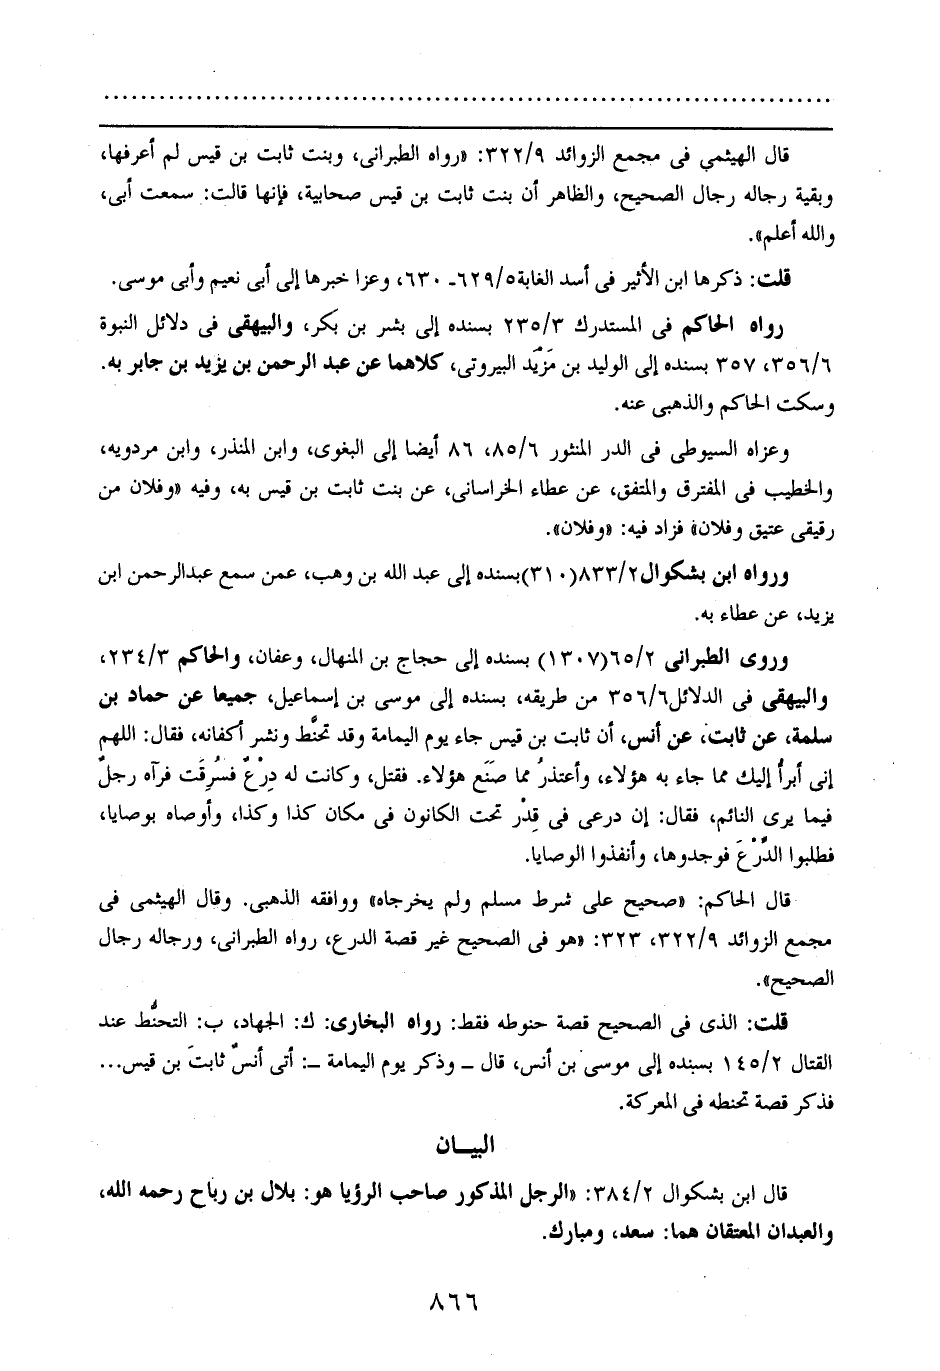 قال الهيثمي فى مجمع الزوائد ٣٢٢/٩: «رواه الطبرانى، وبنت ثابت بن قيس لم أعرفها،
وبقية رجاله رجال الصحيح، والظاهر أن بنت ثابت بن قيس صحابية، فإنها قالت: سمعت أبى،
والله أعلم».
قلت: ذكرها ابن الأثير فى أسد الغابة٦٢٩/٥ـ ٦٣٠، وعزا خبرها إلى أبى نعيم وأبى موسى.
رواه الحاكم فى المستدرك ٢٣٥/٣ بسنده إلى بشر بن بكر، والبيهقى فى دلائل النبوة
٣٥٦/٦، ٣٥٧ بسنده إلى الوليد بن مَزْيَد البيروتى، كلاهما عن عبد الرحمن بن يزيد بن جابر به.
وسكت الحاكم والذهبى عنه.
وعزاه السيوطى فى الدر المنثور ٨٥/٦، ٨٦ أيضا إلى البغوى، وابن المنذر، وابن مردويه،
والخطيب فى المفترق والمتفق، عن عطاء الخراسانى، عن بنت ثابت بن قيس به، وفيه «وفلان من
رقيقى عتيق وفلان» فزاد فيه: «وفلان».
ورواه ابن بشكوال٨٣٣/٢(٣١٠)بسنده إلى عبد الله بن وهب، عمن سمع عبدالرحمن ابن
يزيد، عن عطاء به.
وروى الطبرانى ٦٥/٢(١٣٠٧) بسنده إلى حجاج بن المنهال، وعفان، والحاكم ٢٣٤/٣،
والبيهقى فى الدلائل٣٥٦/٦ من طريقه، بسنده إلى موسى بن إسماعيل، جميعا عن حماد بن
سلمة، عن ثابت، عن أنس، أن ثابت بن قيس جاء يوم اليمامة وقد تحنَّط ونشر أكفانه، فقال: اللهم
إنى أبرأُ إليك مما جاء به هؤلاء، وأعتذرُ مما صَنَع هؤلاء. فقتل، وكانت له دِرْعٌ فسُرِقَت فرآه رجلٌ
فيما يرى النائم، فقال: إن درعى فى قِدْر تحت الكانون فى مكان كذا وكذا، وأوصاه بوصايا،
فطلبوا الدِّرْعَ فوجدوها، وأنفذوا الوصايا.
قال الحاكم: «صحيح على شرط مسلم ولم يخرجاه» ووافقه الذهبى. وقال الهيثمى فى
مجمع الزوائد ٣٢٢/٩، ٣٢٣: «هو فى الصحيح غير قصة الدرع، رواه الطبرانى، ورجاله رجال
الصحيح».
قلت: الذى فى الصحيح قصة حنوطه فقط: رواه البخارى: ك: الجهاد، ب: التحنُّط عند
القتال ١٤٥/٢ بسنده إلى موسى بن أنس، قال ـ وذكر يوم اليمامة ـ: أتى أنسٌ ثابتَ بن قيس...
فذكر قصة تحنطه فى المعركة.
البيـــان
قال ابن بشكوال ٣٨٤/٢: «الرجل المذكور صاحب الرؤيا هو: بلال بن رباح رحمه الله،
والعبدان المعتقان هما: سعد، ومبارك.
٨٦٦